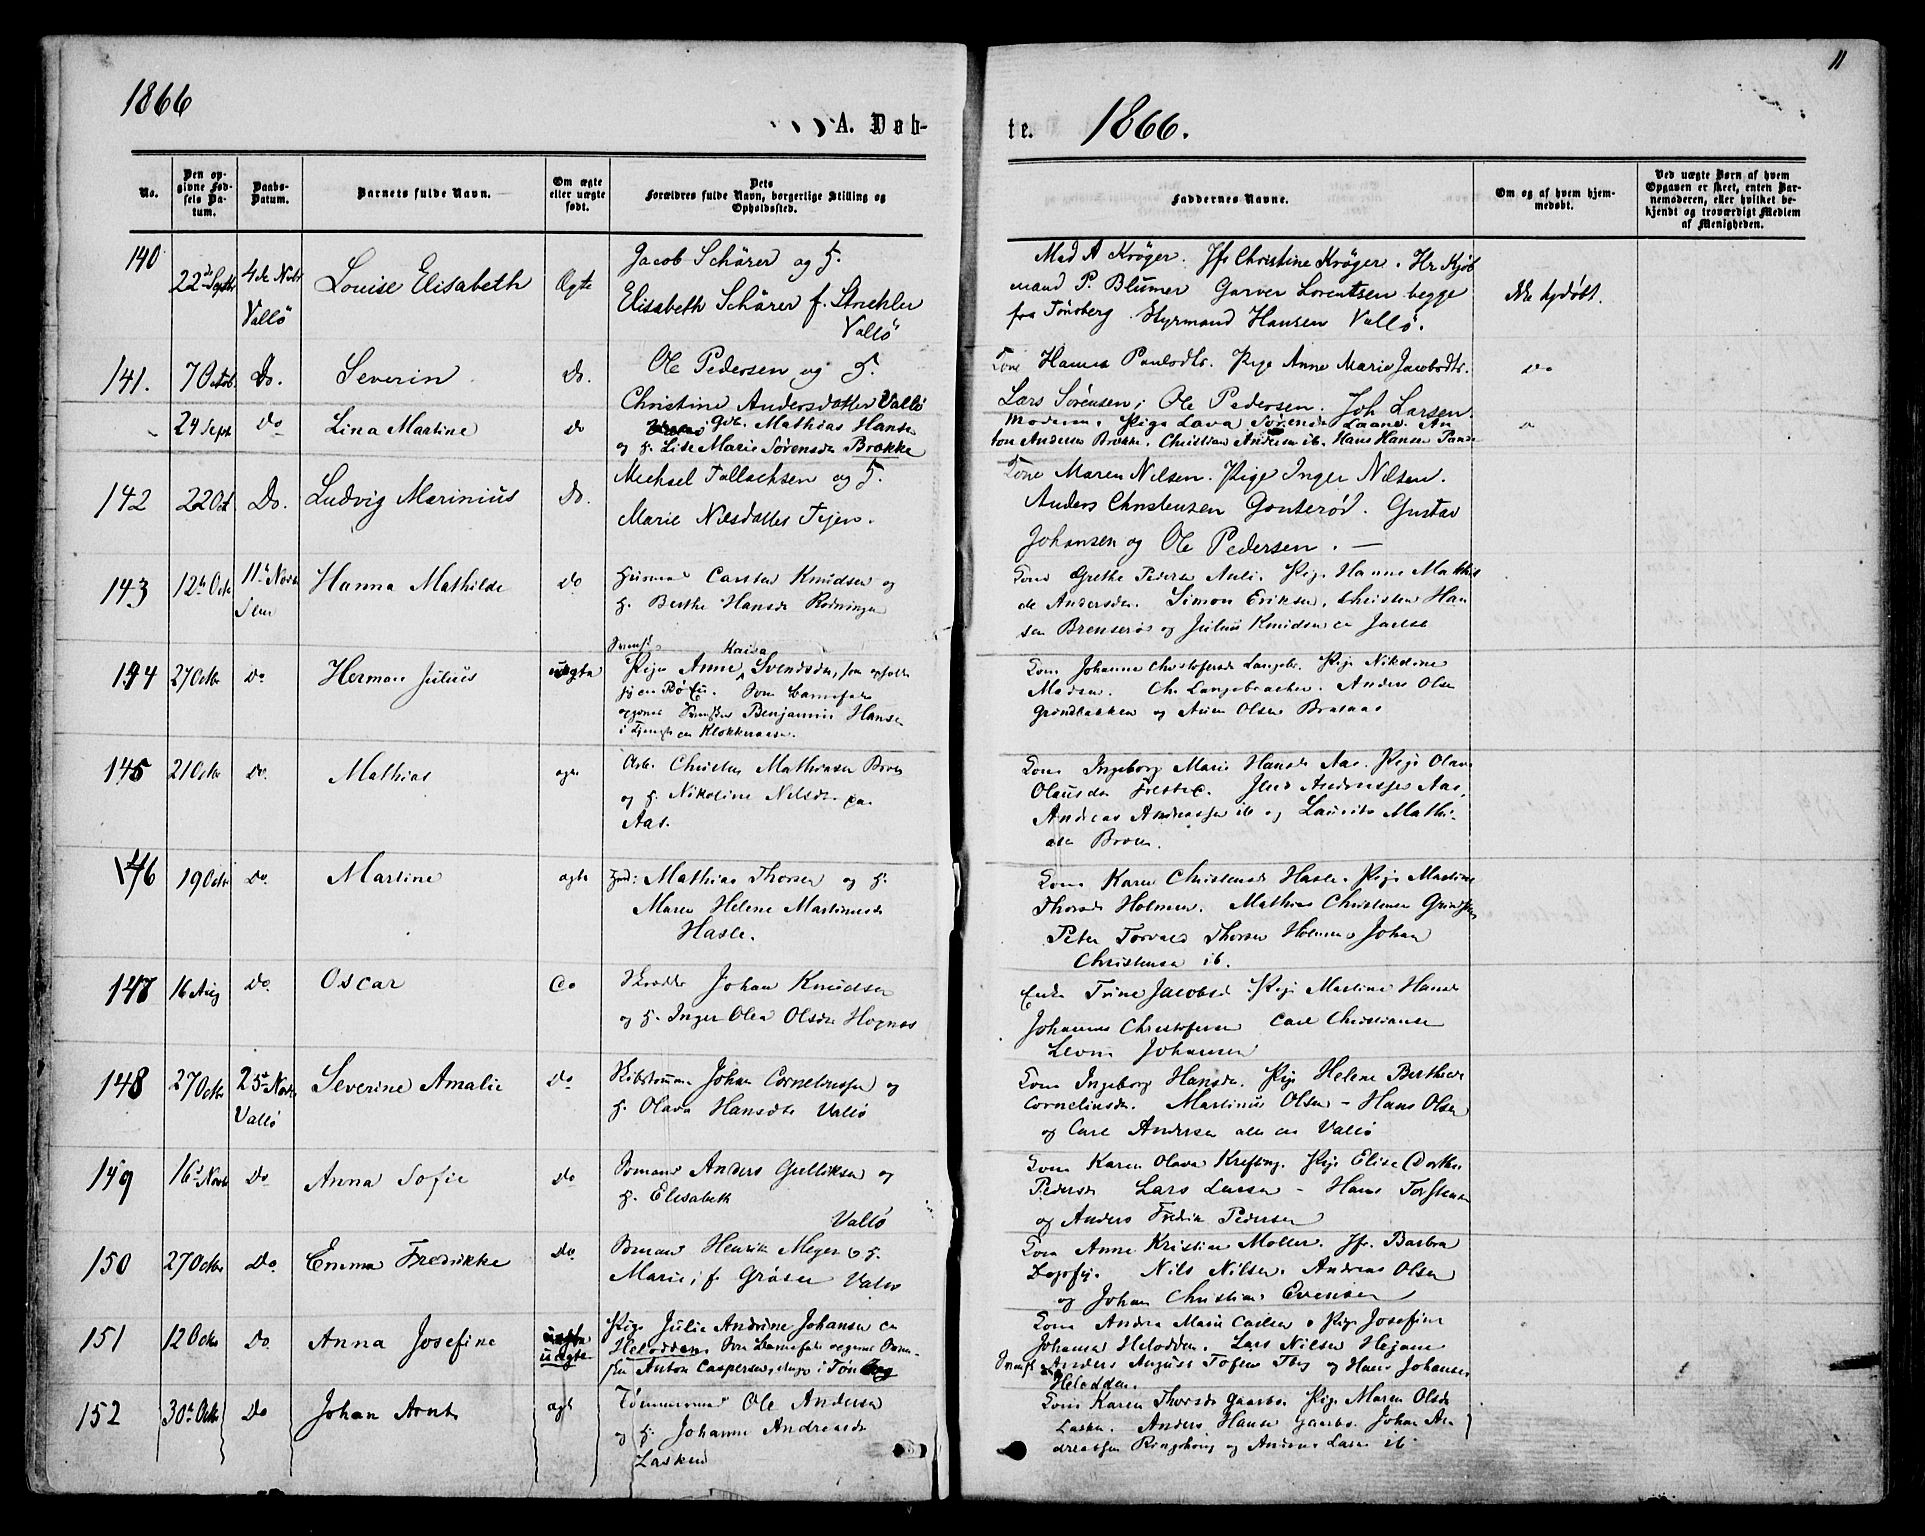 1866
A. Døb-
te.
1866.
11
No.
Den op-
givne Fød-
sels Da-
tum.
Daabs-
Datum.
Barnets fulde Navn.
Om ægte
eller uægte
født.
Dets
Forældres fulde Navn, borgerlige Stilling og
Opholdssted.
Faddernes Navne.
Om og af hvem hjem-
medøbt.
Ved uægte Børn af hvem
Opgaven er skeet, enten Bar-
nemoderen, eller hvilket be-
kjendt og troværdigt Medlem
af Menigheden.
140
22de Septbr
4de Novbr
Vallö
Louise Elisabeth
Ægte
Jacob Schärer og H.
Elisabeth Schärer f. Strehler
Vallö
Mad A Kröger. Jfr Christine Kröger. Hr Kjöb
mand P. Blumer Garver Lorentsen begge
fra Tönsberg. Styrmand Hansen Vallö.
Ikke hjdöbt.
141.
7 Octob.
Do.
Severin
Do.
Ole Pedersen og H.
Christine Andersdatter Vallö
Kone Hanna Paulsdtr. Pige Anne Marie Jacobsdtr.
Lars Sørensen, Ole Pedersen. Joh Larsen.
do
24 Sept
Do
Lina Martine
do
Gdb. Mathias Hansen
og H. Lise Marie Sørensdr Brække
Moderen. Pige Lava Sørensdr Laane. An
ton Andersen Brække. Christian Andersen ib. Hans Hansen
142
22 Oct
Do.
Ludvig Marinius
Do.
Michael Tallachsen og H.
Marie Nilsdatter Tejen.
Kone Maren Nilsen. Pige Inger Nilsen.
Anders Christensen Gonterød. Gustav
Johansen og Ole Pedersen. —
143
12te Octr
11te Novbr
Sem
Hanna Mathilde
do
Husmand Carsten Knudsen og
H. Berthe Hansdr Rødningen
Kone Grethe Pedersen Auli. Pige Hanne Mathil
de Andersdr. Simon Eriksen. Christen Han
sen Brenserød og Julius Knudsen
144
27 Octbr
Do
Herman Julius
uægte
Kaisa
Pige Anne Svendsdr, som opholder
sig Som Barnefader
opgives Benjamin Hansen
Klokkeraasen.
Kone Johanne Christofersdr Langebr. Pige Nikoline
Madsen. Chr Langebrækken. Anders Olsen
Grindbakken og Olsen
145
21 Octbr
Do.
Mathias
ægte
Arb. Christen Mathiasen Broen
og H. Nikoline Nilsdr paa
Aas.
Kone Ingeborg Marie Hansdr Aas. Pige Olava
Olausdr Andreassen Aas.
Andreas Andreassen ib og Laurits Mathi-
asen Broen.
146
19 Octbr
Do.
Martine
ægte
Gbd: Mathias Thorsen og H.
Maren Helene Martinusdr
Hasle.
Kone Karen Christensdr Hasle. Pige Martine
Thorsdr Holmen. Mathias Christensen
Peter Torvald Thorsen Holmen Johan
Christensen ib.
147
16 Aug
Do.
Oscar
Do
Skrædder Johan Knudsen
og H. Inger Olea Olsdr Hognes
Enke Trine Jacobsdr Pige Martine Hansdr
Johannes Christofersen Carl Christiansen
Johansen
148
27 Octbr
25de Novbr
Vallö
Severine Amalie
Do
Skibstømmermand Johan Corneliussen og
H. Olava Hansdtr Vallö
Kone Ingeborg Hansdr. Pige Helene Berthea
Corneliusdr. Martinus Olsen – Hans Olsen
og Carl Andersen alle Vallö
149
16de Novbr
Do
Anna Sofie
Do
Sømand Anders Gulliksen og
H. Elisabeth
Vallö
Kone Karen Olava Krefting. Pige Elise Dorthea
Pedersdr Lars Larsen – Hans Torstensen
og Anders Fredrik Pedersen
150
27 Octbr
Do.
Emma Fredrikke
Do
Sømand Henrik Meyer og H.
Marie, f. Gröser Vallö
Kone Anne Kristine Möller. Jfr. Barbra
Nils Nilsen. Andreas Olsen
og Johan Christian Evensen
151
12 Octbr
Do.
Anna Josefine
uægte
Pige Julie Andrine Johansen
Helodden. Som Barnefader opgives Søm.
Anton Caspersen, i Tönsberg
Kone Andrea Marie Carlsen, Pige Josefine
Johansen Helodden. Lars Nilsen
Anders August Tofesen Tbg og Hans Johansen
Helodden.
152
30te Octbr
Do
Johan Arnt
ægte
Tømmermand Ole Andersen
og H. Johanne Andreasdr
Lasken
Kone Karen Thorsdr Gaarbo. Pige Maren Olsdr
Lasken. Anders Hansen Gaarbo. Johan An
dreassen Ringshoug og Andreas Larsen ib